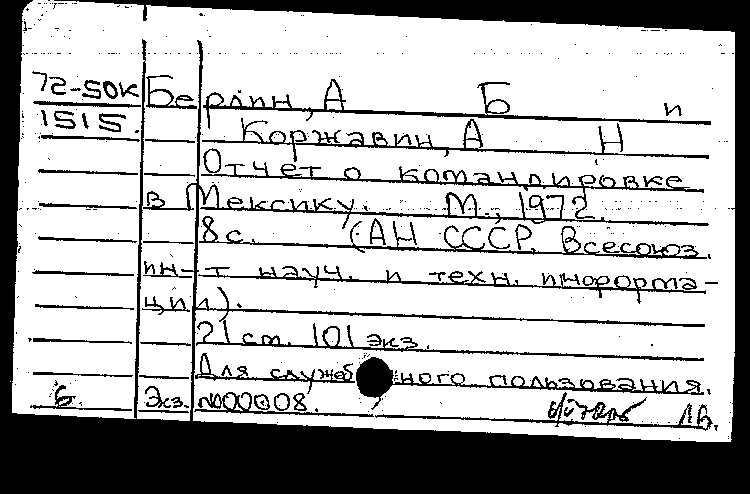 72-50К Берлин, А Б и
1515. Коржавин, А Н
Отчет о командировке
в Мексику. М., 1972.
8с. (АН СССР. Всесоюз.
ин-т науч. и техн. информа-
ции).
21 ст. 101 экз.
Для служебного пользования.
6 Экз. №00008. ЛВ.